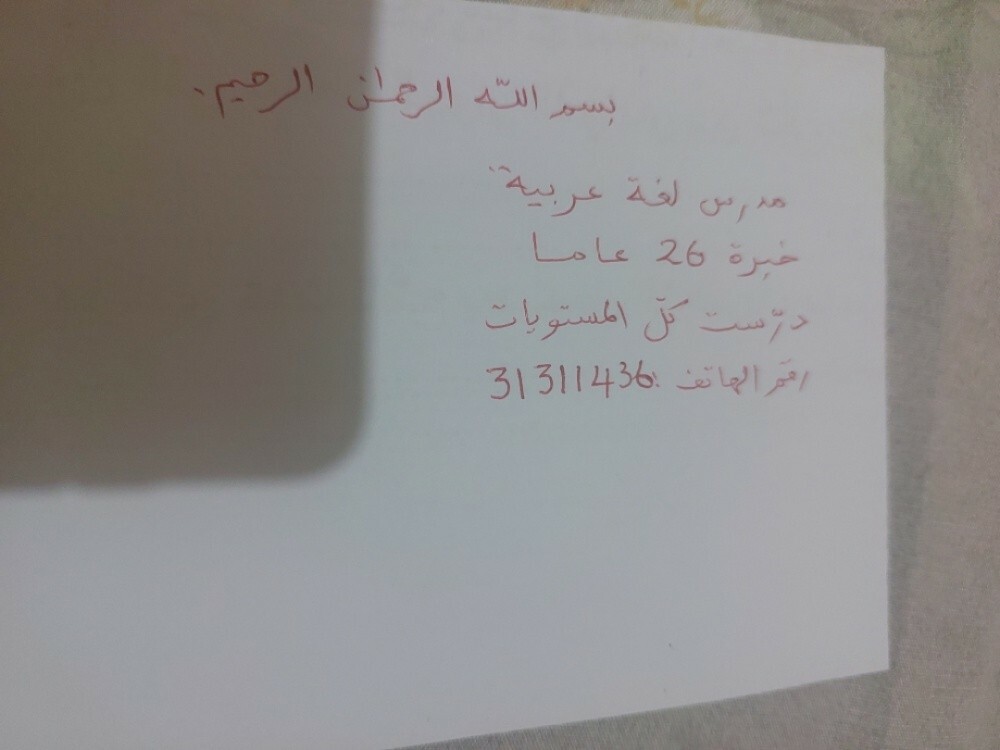 بسم اللّه الرحمان الرحيم.
مدرس لغة عربية
خبرة 26 عاما
درّست كلّ المستويات
رقم الهاتف: 31311436